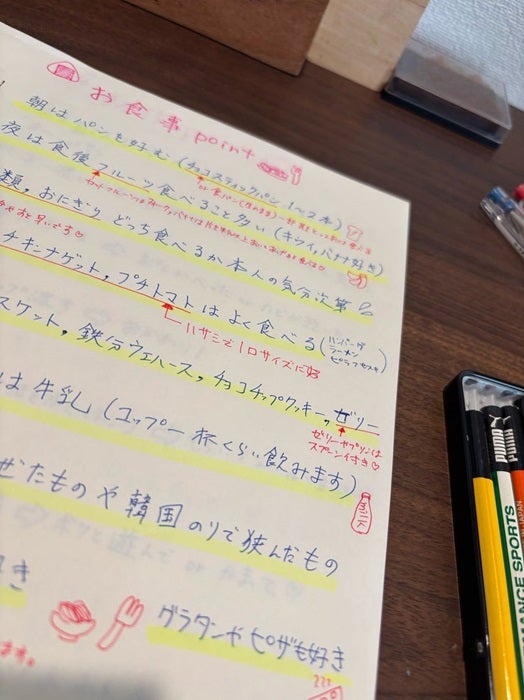 お食事 point
朝はパンも好む(チョコスティックパン 1〜2本)
夜は食後フルーツ食べること多い(キウイ,バナナ好き)
類,おにぎり どっち食べるか本人の気分次第
チキンナゲット,プチトマトはよく食べる(ハンバーグ
ラーメン
ピラフもスキ)
ハサミで1口サイズに
スケット,鉄分ウエハース,チョコチップクッキー,ゼリー
ゼリーやプリンは
スプーン付き♡
は牛乳(コップ一杯くらい飲みます)
ミルク
ぜたものや韓国のりで挟んだもの
き
グラタンやピザも好き
ます。
PUMA
PUMA
MANCE SPORTS
JAPAN